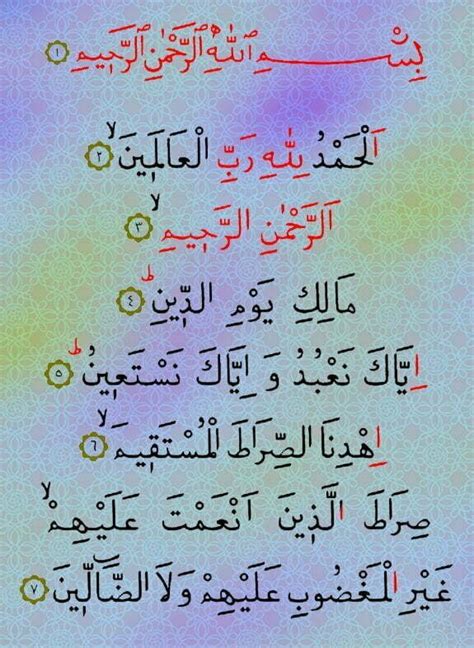 بِسْــــــمِ اللّٰهِ الرَّحْمٰنِ الرَّحٖيمِ ١
اَلْحَمْدُ لِلّٰهِ رَبِّ الْعَالَمٖينَۙ ٢
اَلرَّحْمٰنِ الرَّحٖيمِۙ ٣
مَالِكِ يَوْمِ الدّٖينِؕ ٤
اِيَّاكَ نَعْبُدُ وَ اِيَّاكَ نَسْتَعٖينُؕ ٥
اِهْدِنَا الصِّرَاطَ الْمُسْتَقٖيمَۙ ٦
صِرَاطَ الَّذٖينَ اَنْعَمْتَ عَلَيْهِمْۙ
غَيْرِ الْمَغْضُوبِ عَلَيْهِمْ وَلَا الضَّٓالّٖينَ ٧